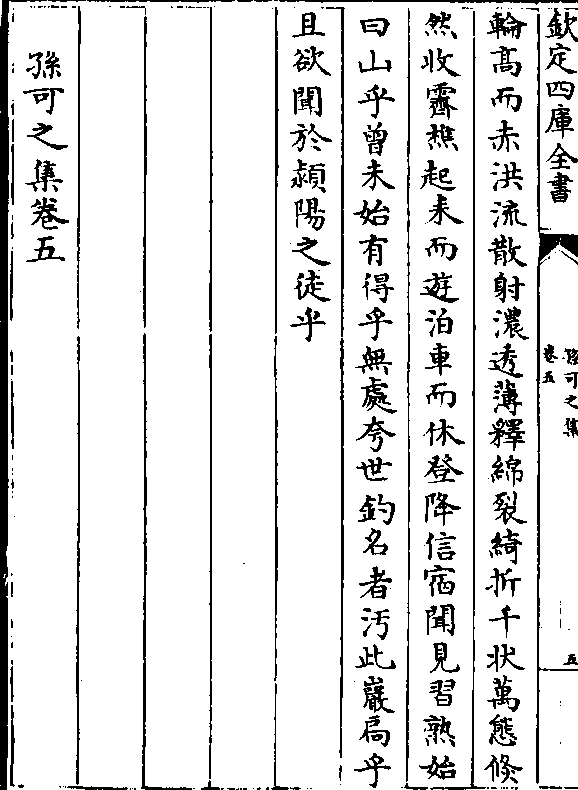 欽定四庫全書
孫可之集
卷五
五
輪髙而赤洪流散射濃透薄釋綿裂綺折千状萬態倏
然收霽樵起耒而遊泊車而休登降信宿聞見習熟始
曰山乎曾未始有得乎無處夸世釣名者汚此巖扃乎
且欲聞於潁陽之徒乎
孫可之集卷五